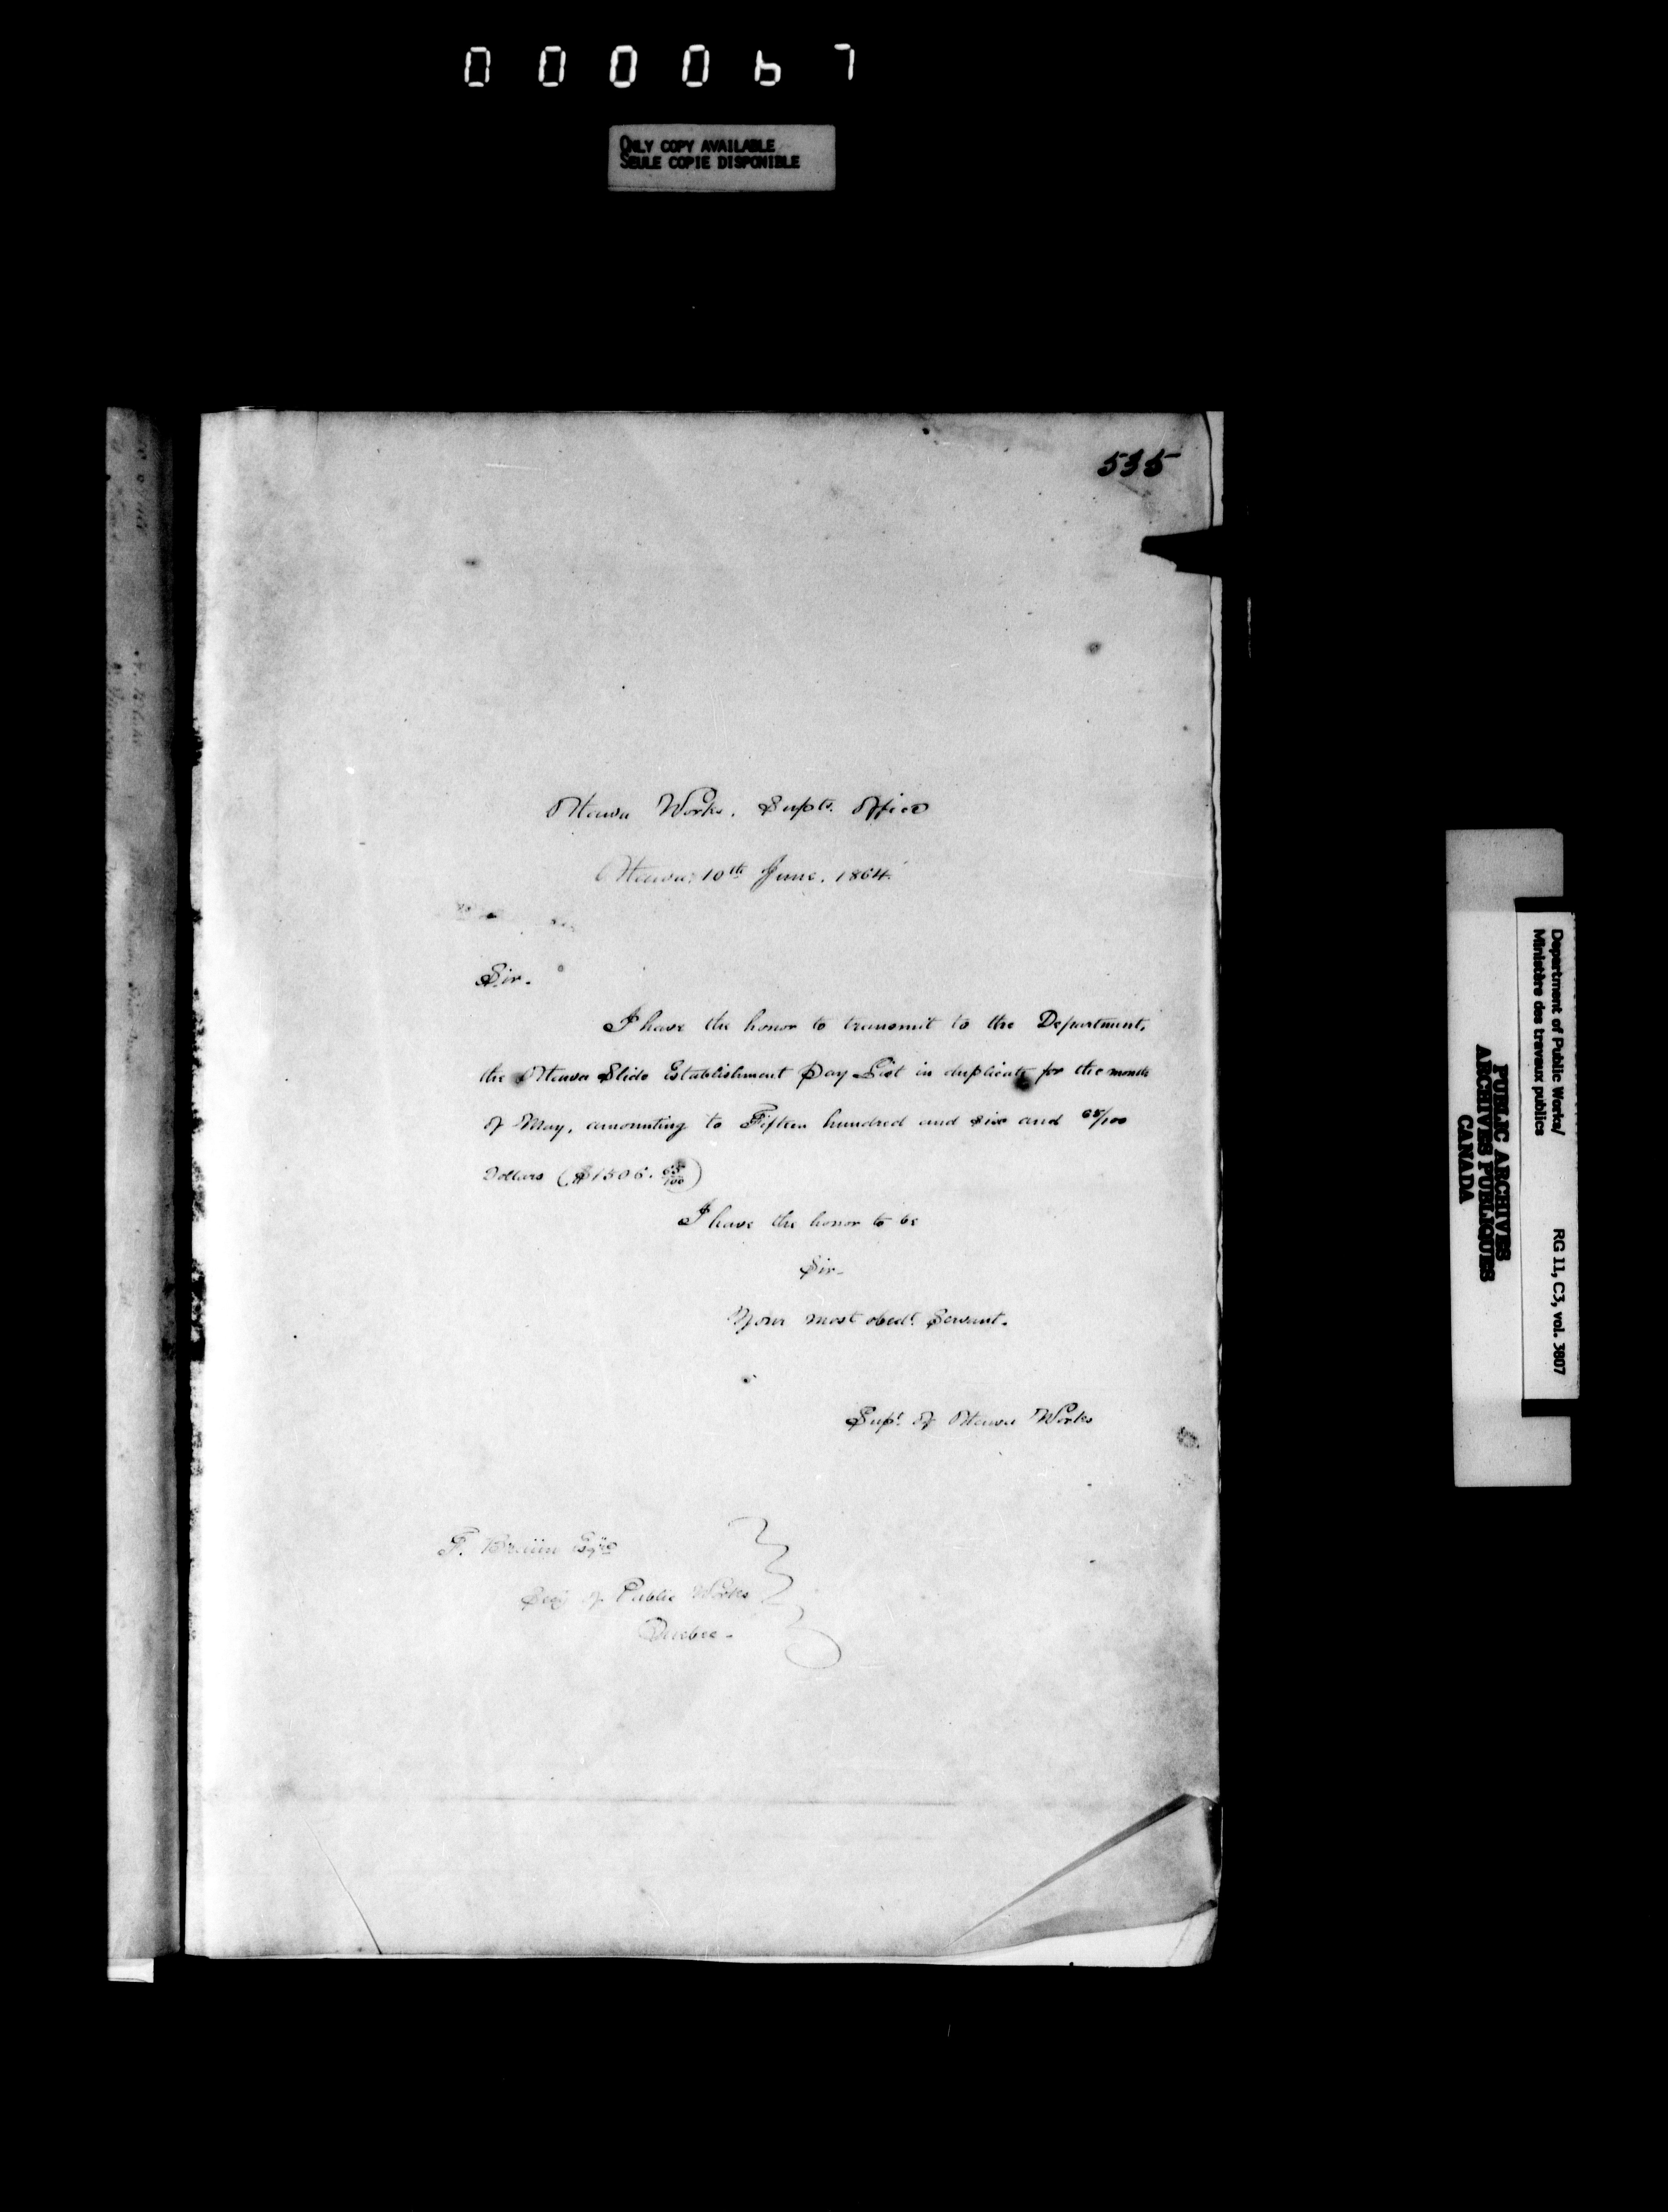 000067
ONLY COPY AVAILABLE
SEULE COPIE DISPONIBLE
535
Ottawa Works. Supts. Office
Ottawa, 10th June. 1864.
Sir.
I have the honor to transmit to the Department,
the Ottawa Slide Establishment Pay List in duplicate for the month
of May, amounting to Fifteen hundred and six and 65/100
Dollars ($1506. 65/100)
I have the honor to be
Sir.
Your most obedt. Servant.
Supt. of Ottawa Works
F. Braün Esqre
Secy of Public Works
Quebec.
Department of Public Works/
Ministère des travaux publics
RG 11, C3, vol. 3807
PUBLIC ARCHIVES
ARCHIVES PUBLIQUES
CANADA